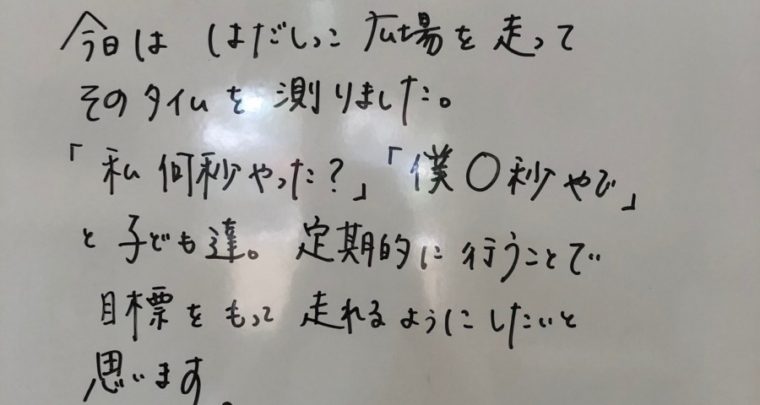 今日は はだしっこ広場を走って
そのタイムを測りました。
「私何秒やった?」「僕〇秒やで」
と子ども達。定期的に行うことで
目標をもって走れるようにしたいと
思います。